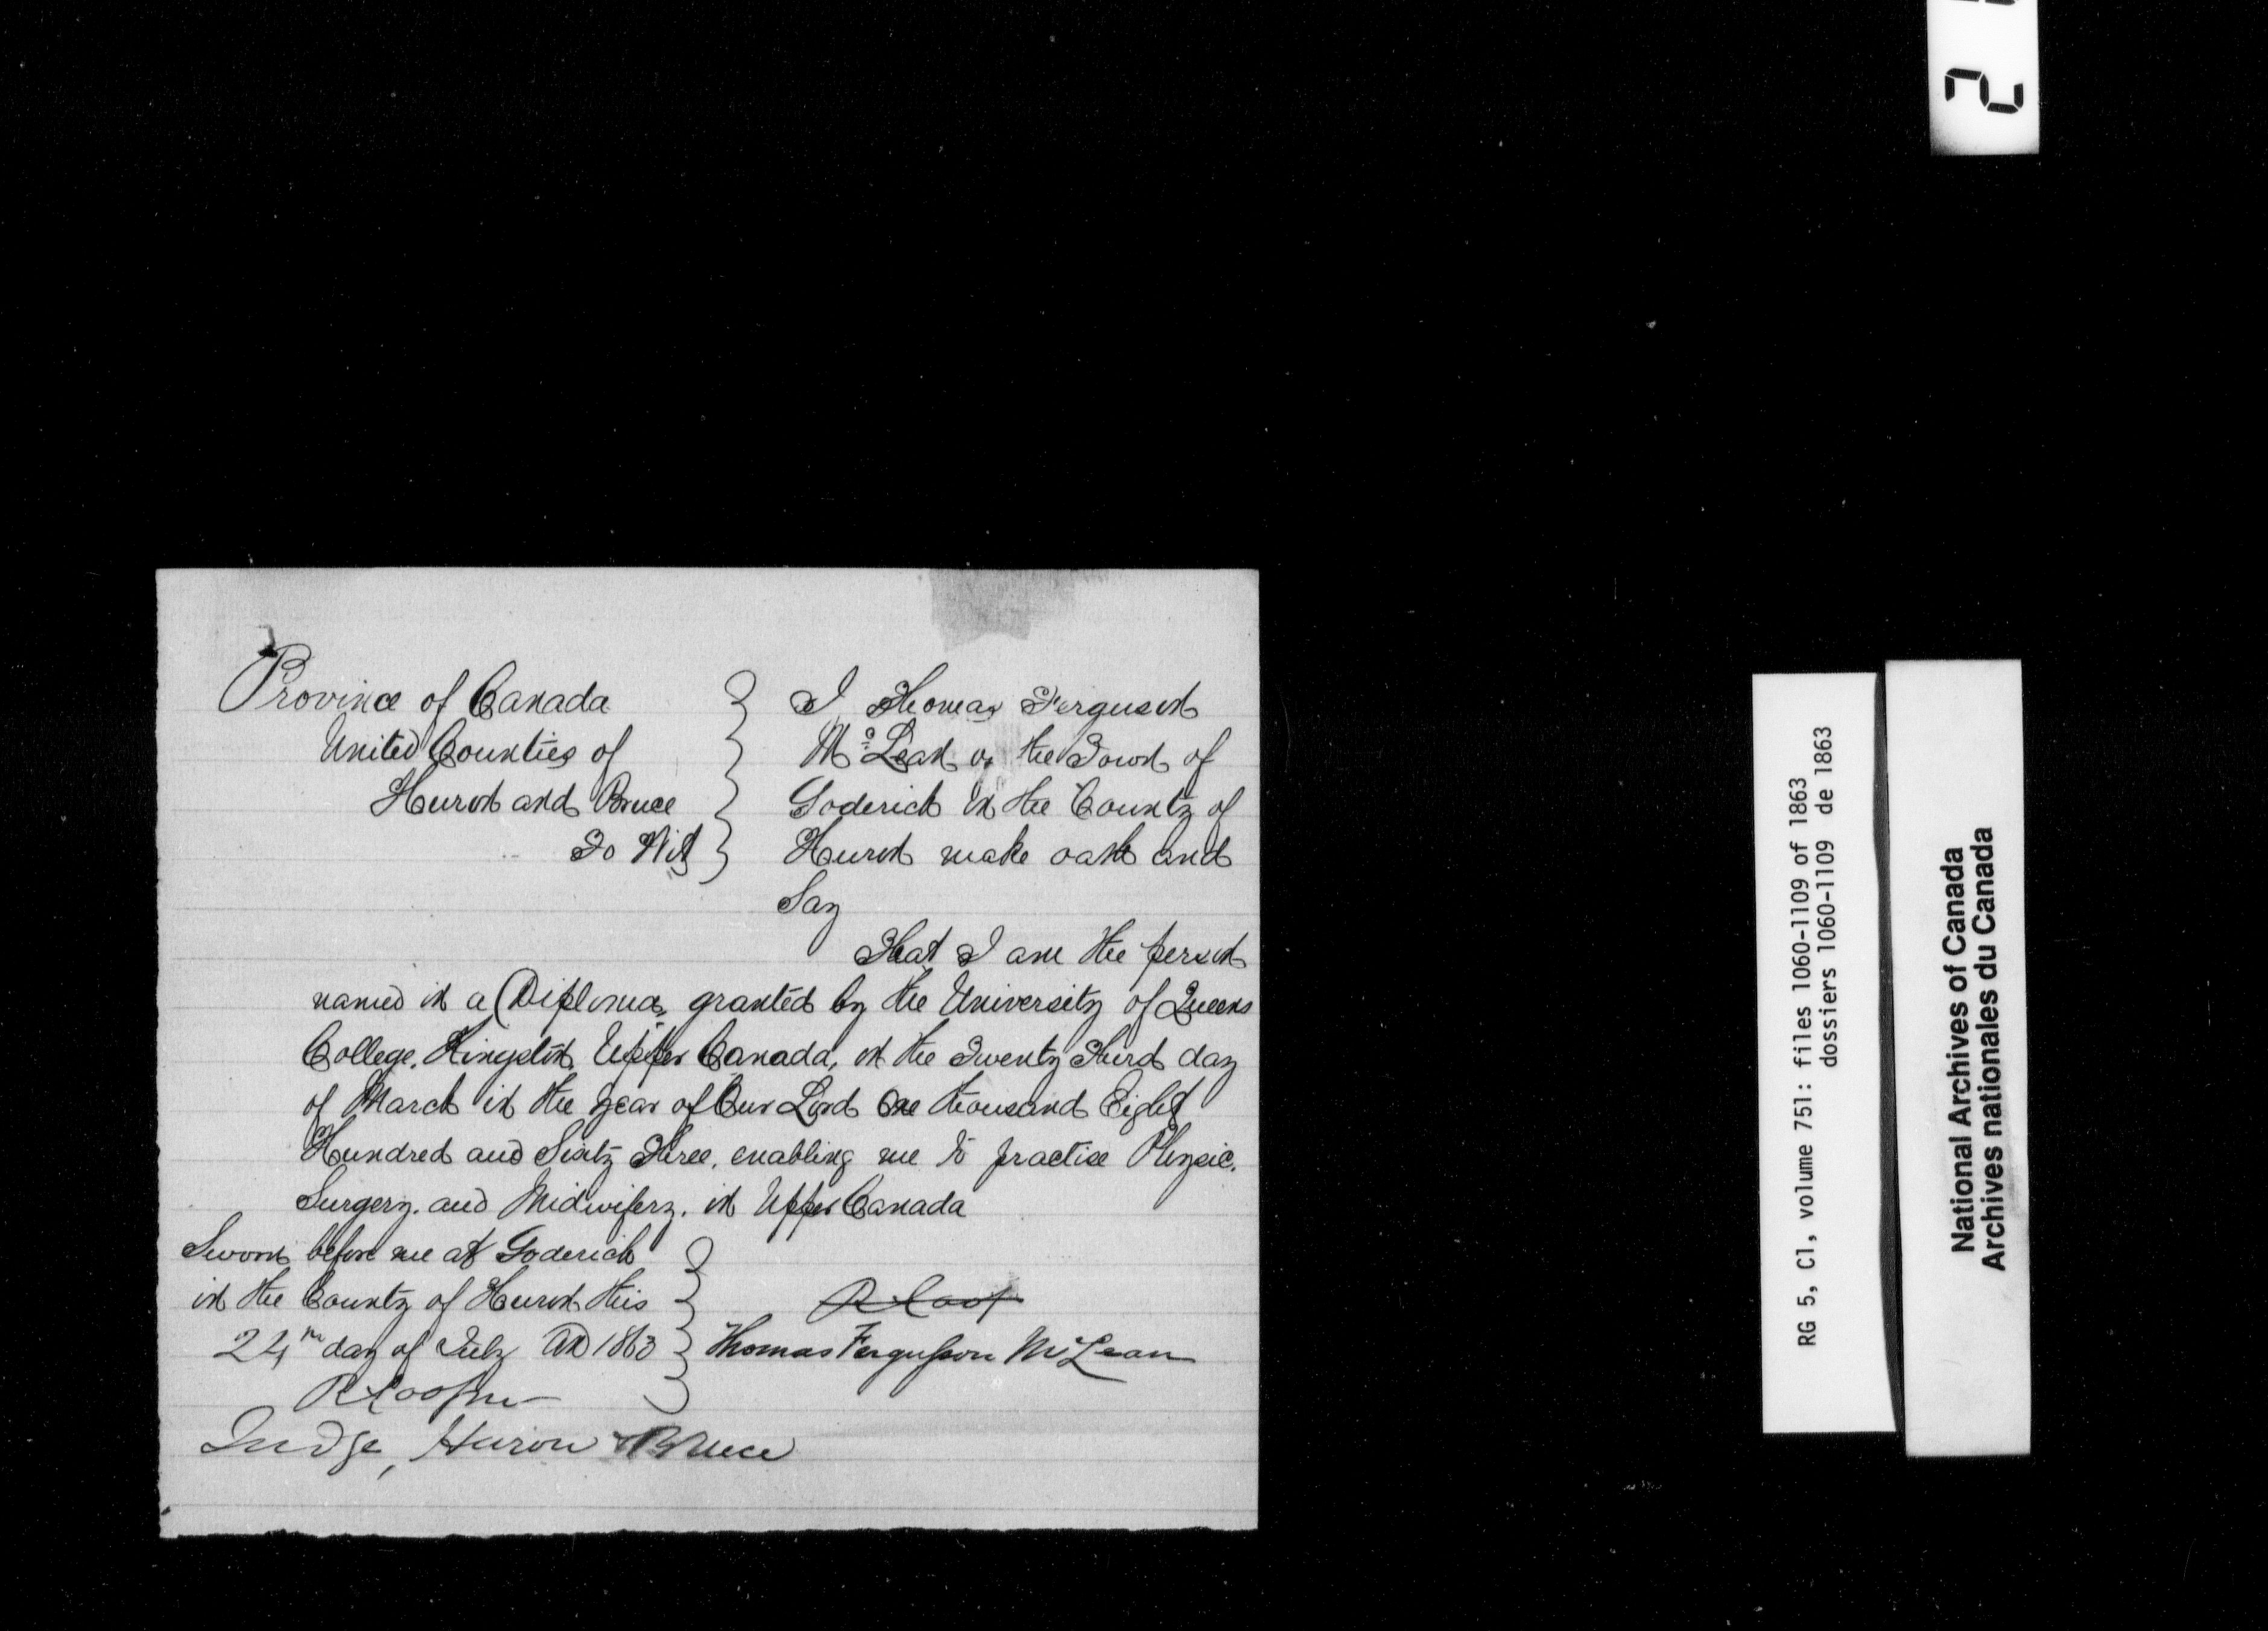 Province of Canada
United Counties of
Huron and Bruce
To Wit
I Thomas Ferguson
Mc Lean of the Town of
Goderich in the County of
Huron make oath and
Say
That I am the person
named in a Diploma, granted by the University of Queens
College, Kingston, Upper Canada, on the Twenty Third day
of March in the year of Our Lord One thousand Eight
Hundred and Sixty Three, enabling me to practise Physic,
Surgery, and Midwifery, in Upper Canada
Sworn before me at Goderich
in the County of Huron this
24th day of July AD 1863
R Cooper
Judge, Huron & Bruce
R Coop
Thomas Fergusson McLean
RG 5, C1, volume 751: files 1060-1109 of 1863
dossiers 1060-1109 de 1863
National Archives of Canada
Archives nationales du Canada
2